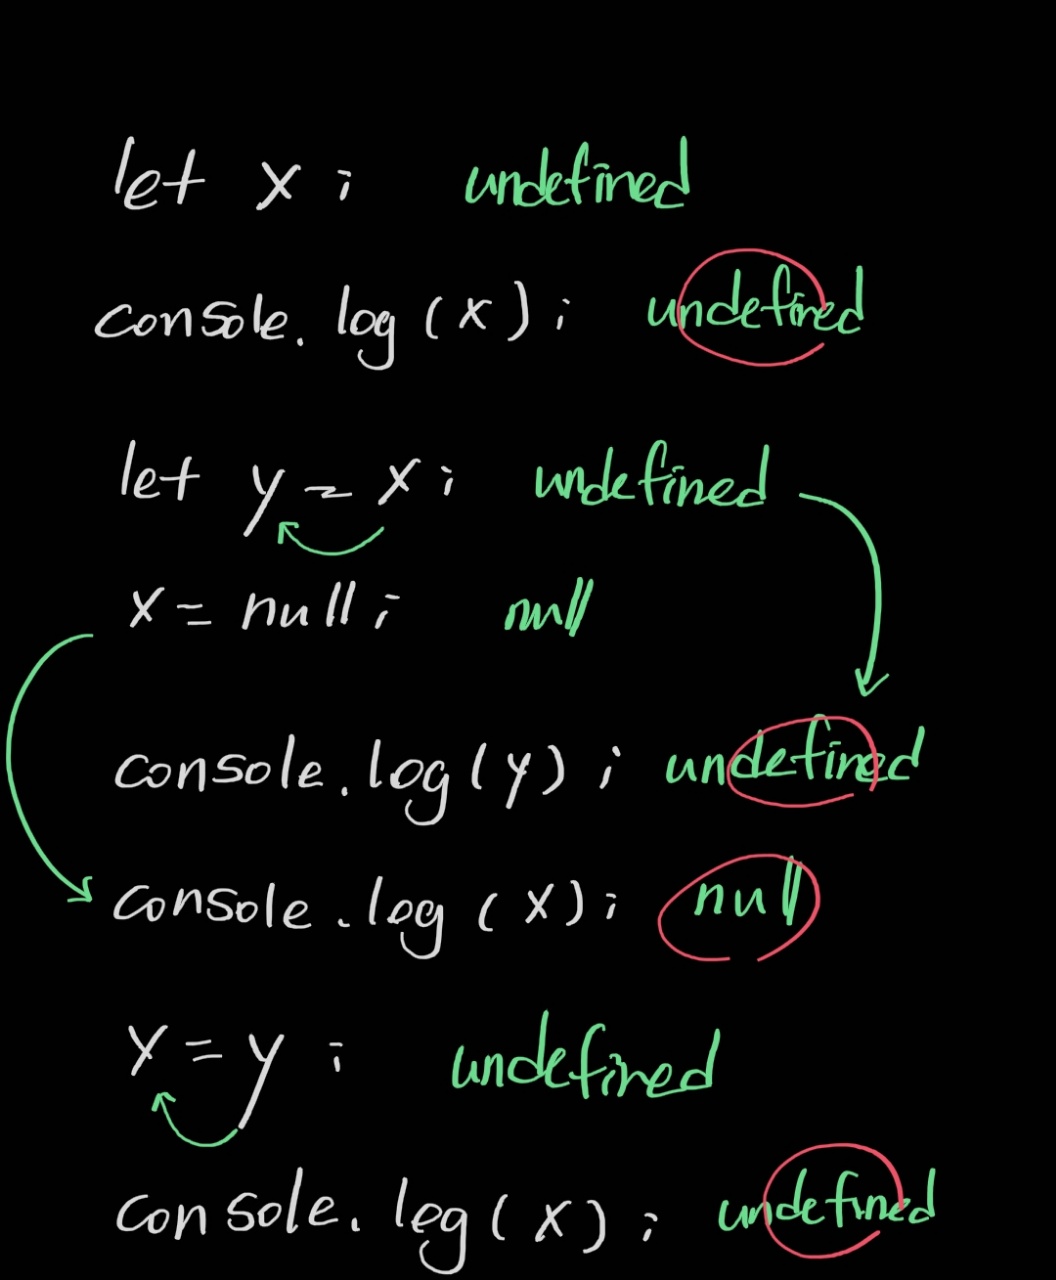 let x; undefined
console.log(x); undefined
let y = x; undefined
x = null; null
console.log(y); undefined
console.log(x); null
x = y; undefined
console.log(x); undefined